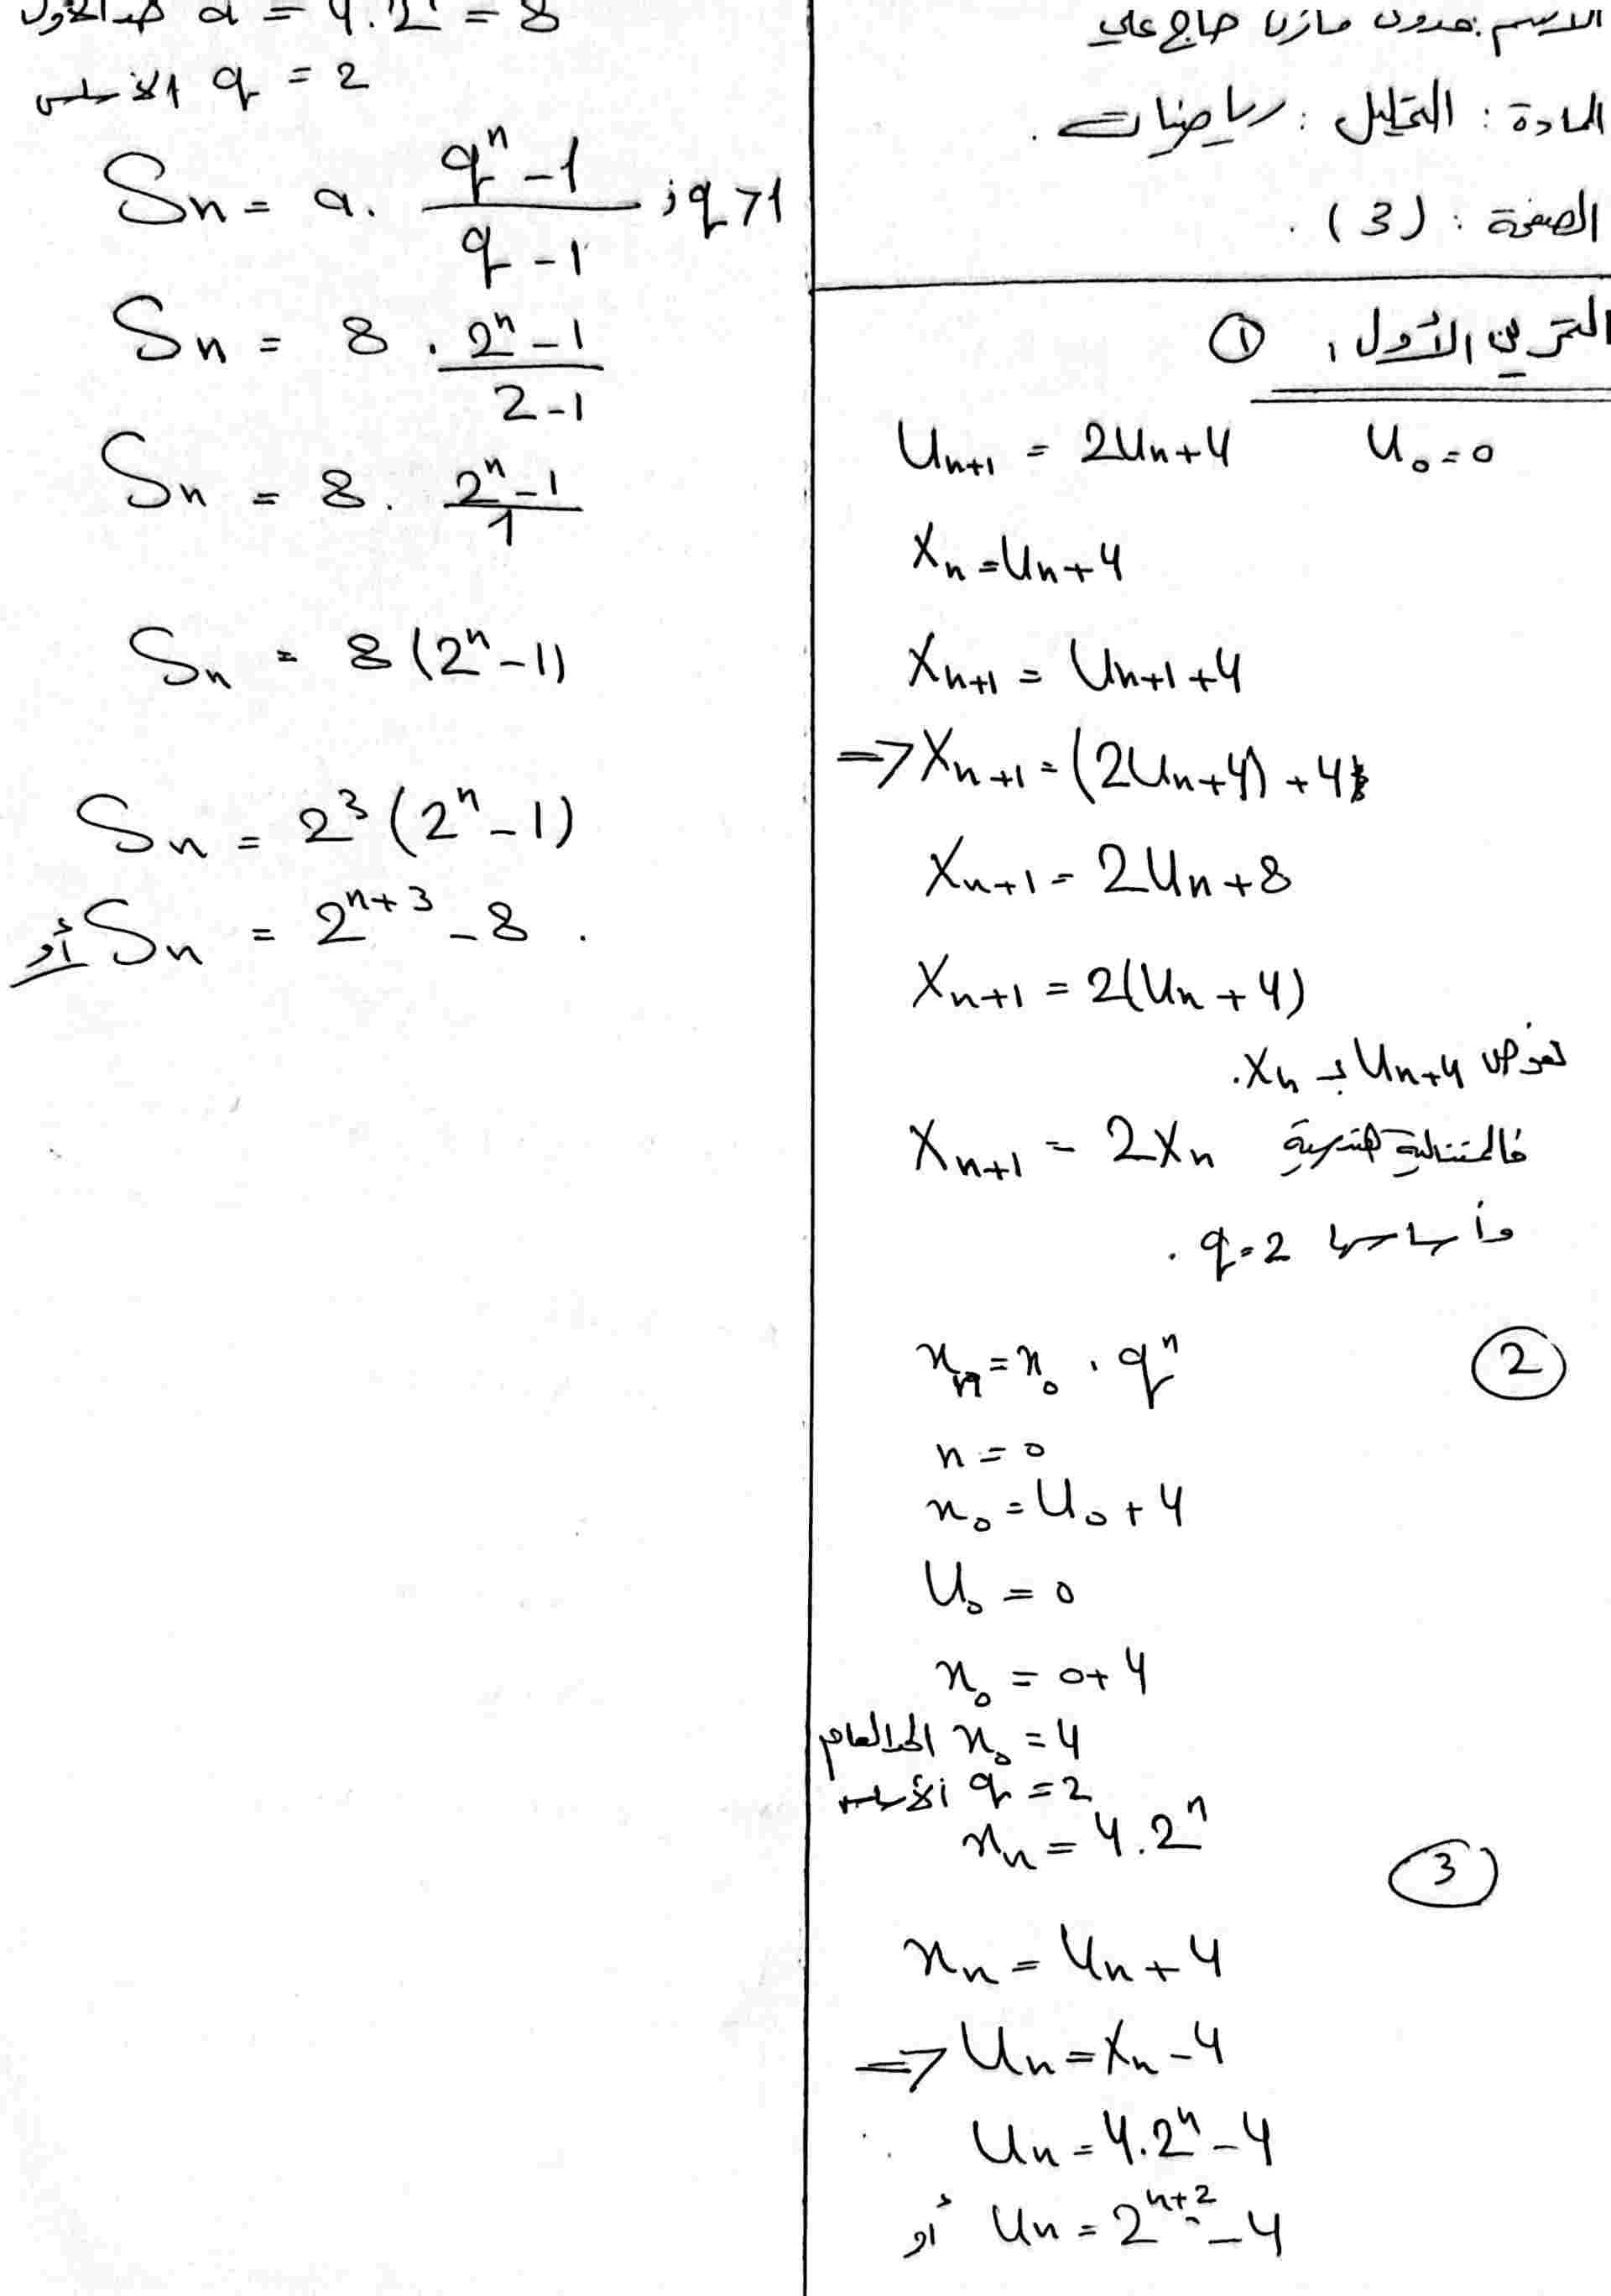 الاسم: هدون مازن حاج علي
المادة: التحليل: رياضيات.
الصفحة: (3).
التمرين الأول: ①
U_{n+1} = 2U_n+4    U_0=0
X_n=U_n+4
X_{n+1} = U_{n+1}+4
=> X_{n+1} = (2U_n+4) + 4
X_{n+1} = 2U_n+8
X_{n+1} = 2(U_n+4)
نعوض U_n+4 بـ X_n.
X_{n+1} = 2X_n فالمتتالية هندسية
وأساسها q=2.
②
x_n = x_0 . q^n
n = 0
x_0 = U_0 + 4
U_0 = 0
x_0 = 0+4
x_0 = 4 الحد العام
q = 2 الأساس
x_n = 4.2^n
③
x_n = U_n + 4
=> U_n = X_n - 4
U_n = 4.2^n - 4
أو U_n = 2^{n+2} - 4
a = 4.2^1 = 8 حد الأول
q = 2 الأساس
S_n = a. \frac{q^n - 1}{q - 1} ; q>1
S_n = 8 . \frac{2^n - 1}{2-1}
S_n = 8 . \frac{2^n - 1}{1}
S_n = 8 (2^n - 1)
S_n = 2^3 (2^n - 1)
أو S_n = 2^{n+3} - 8 .